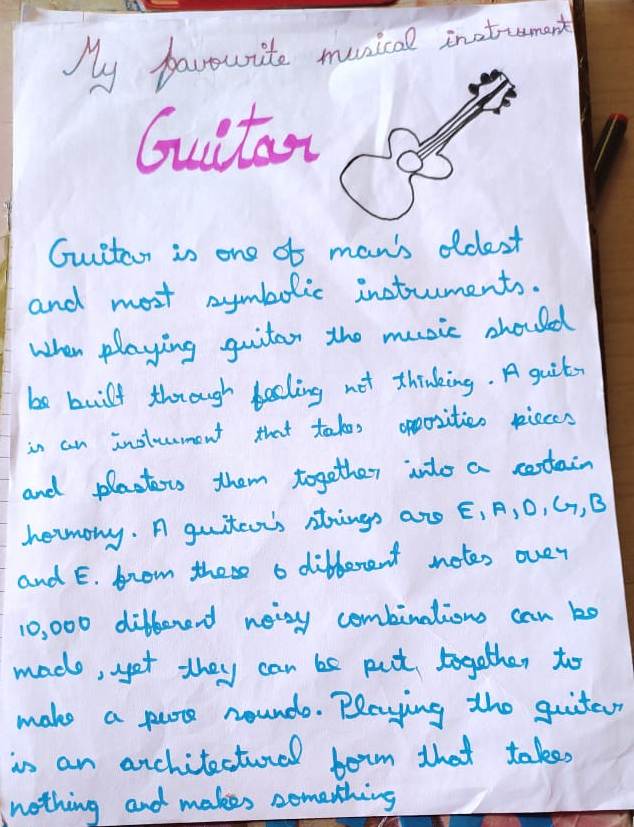 My favourite musical instrument
Guitar
Guitar is one of man's oldest
and most symbolic instruments.
When playing guitar the music should
be built through feeling not thinking. A guitr
is an instrument that takes opposities pieces
and plasters them together into a certain
hormony. A guitar's strings are E, A, D, G, B
and E. from these 6 different notes over
10,000 different noisy combinations can be
made, yet they can be put, together to
make a pure sounds. Playing the guitar
is an architectural form that takes
nothing and makes something